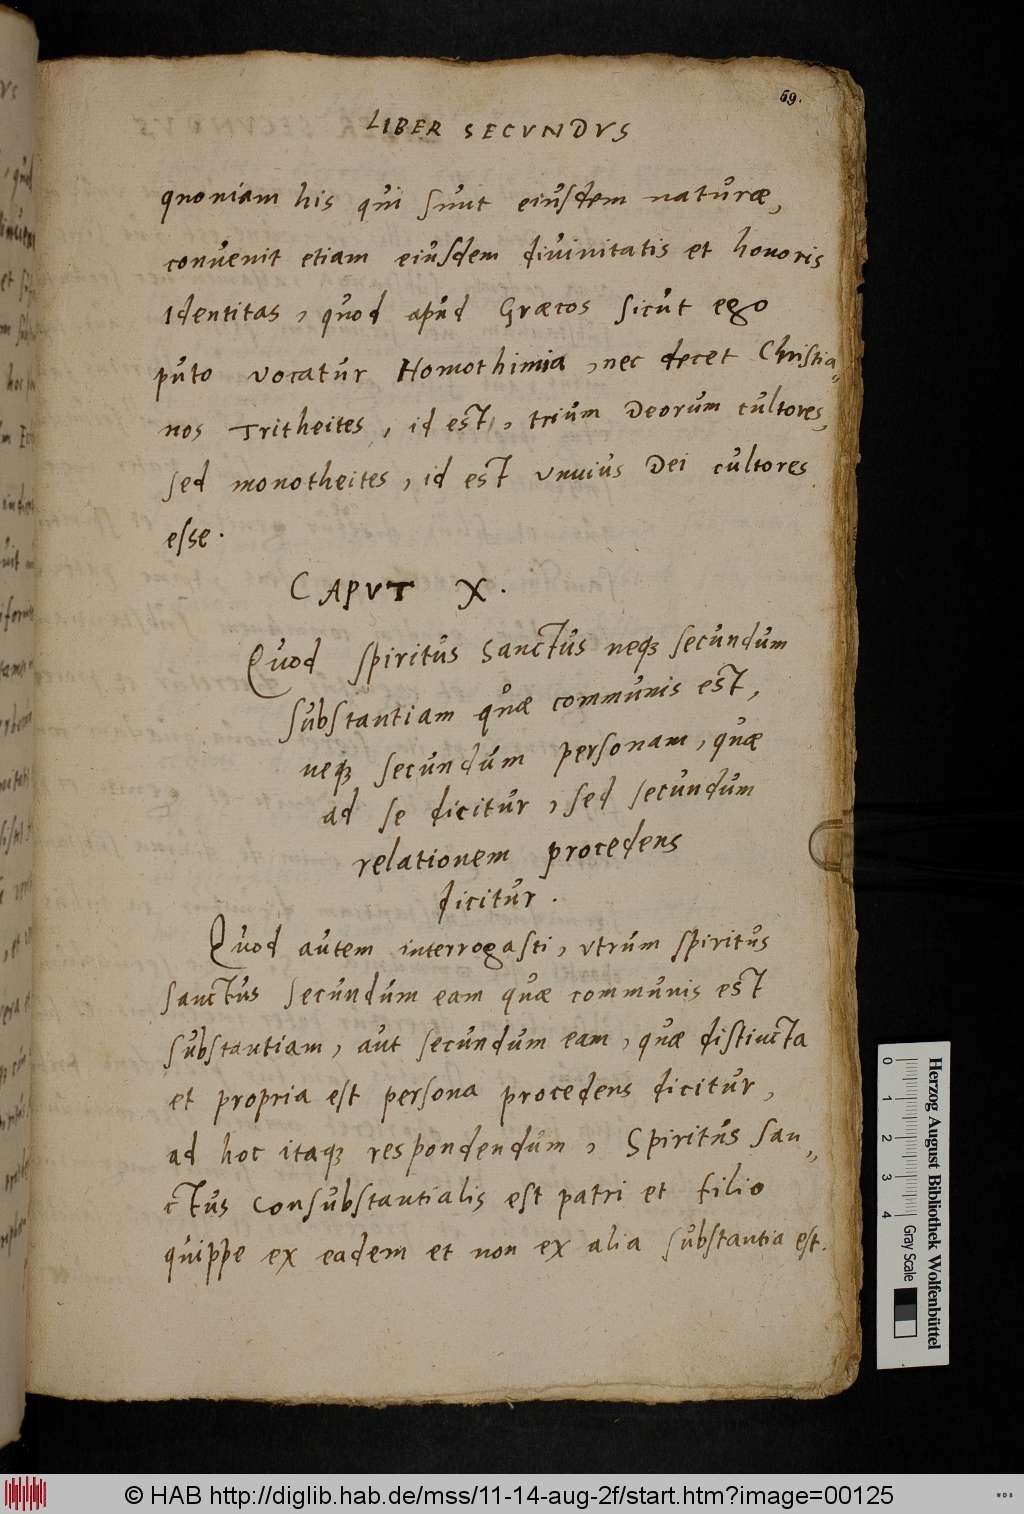 69.
LIBER SECVNDVS
quoniam his qui sunt eiusdem naturæ,
convenit etiam eiusdem divinitatis et honoris
Identitas, quod apud Græcos sicut ego
puto vocatur Homothimia, nec decet Christia„
nos Tritheites, id est, trium Deorum cultores,
sed monotheites, id est vnuius Dei cultores
esse.
CAPVT X.
Quod spiritus Sanctus neqꝫ secundum
substantiam quæ communis est,
neqꝫ secundum personam, quæ
ad se dicitur, sed secundum
relationem procedens
dicitur.
Quod autem interrogasti, vtrum spiritus
sanctus secundum eam quæ communis est
substantiam, aut secundum eam, quæ distincta
et propria est persona procedens dicitur,
ad hoc itaqꝫ respondendum, Spiritus san„
ctus Consubstantialis est patri et filio
quippe ex eadem et non ex alia substantia est.
0 1 2 3 4
Gray Scale
Herzog August Bibliothek Wolfenbüttel
© HAB http://diglib.hab.de/mss/11-14-aug-2f/start.htm?image=00125
WDB